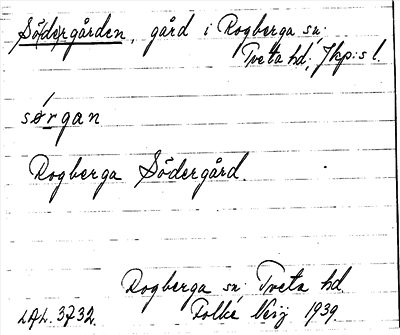 Sö(de)rgården, gård i Rogberga sn.
Tveta hd, Jkp:s l.
sørgan
Rogberga Södergård.
Rogberga sn. Tveta hd.
LAL. 3732. Folke Neij 1939.